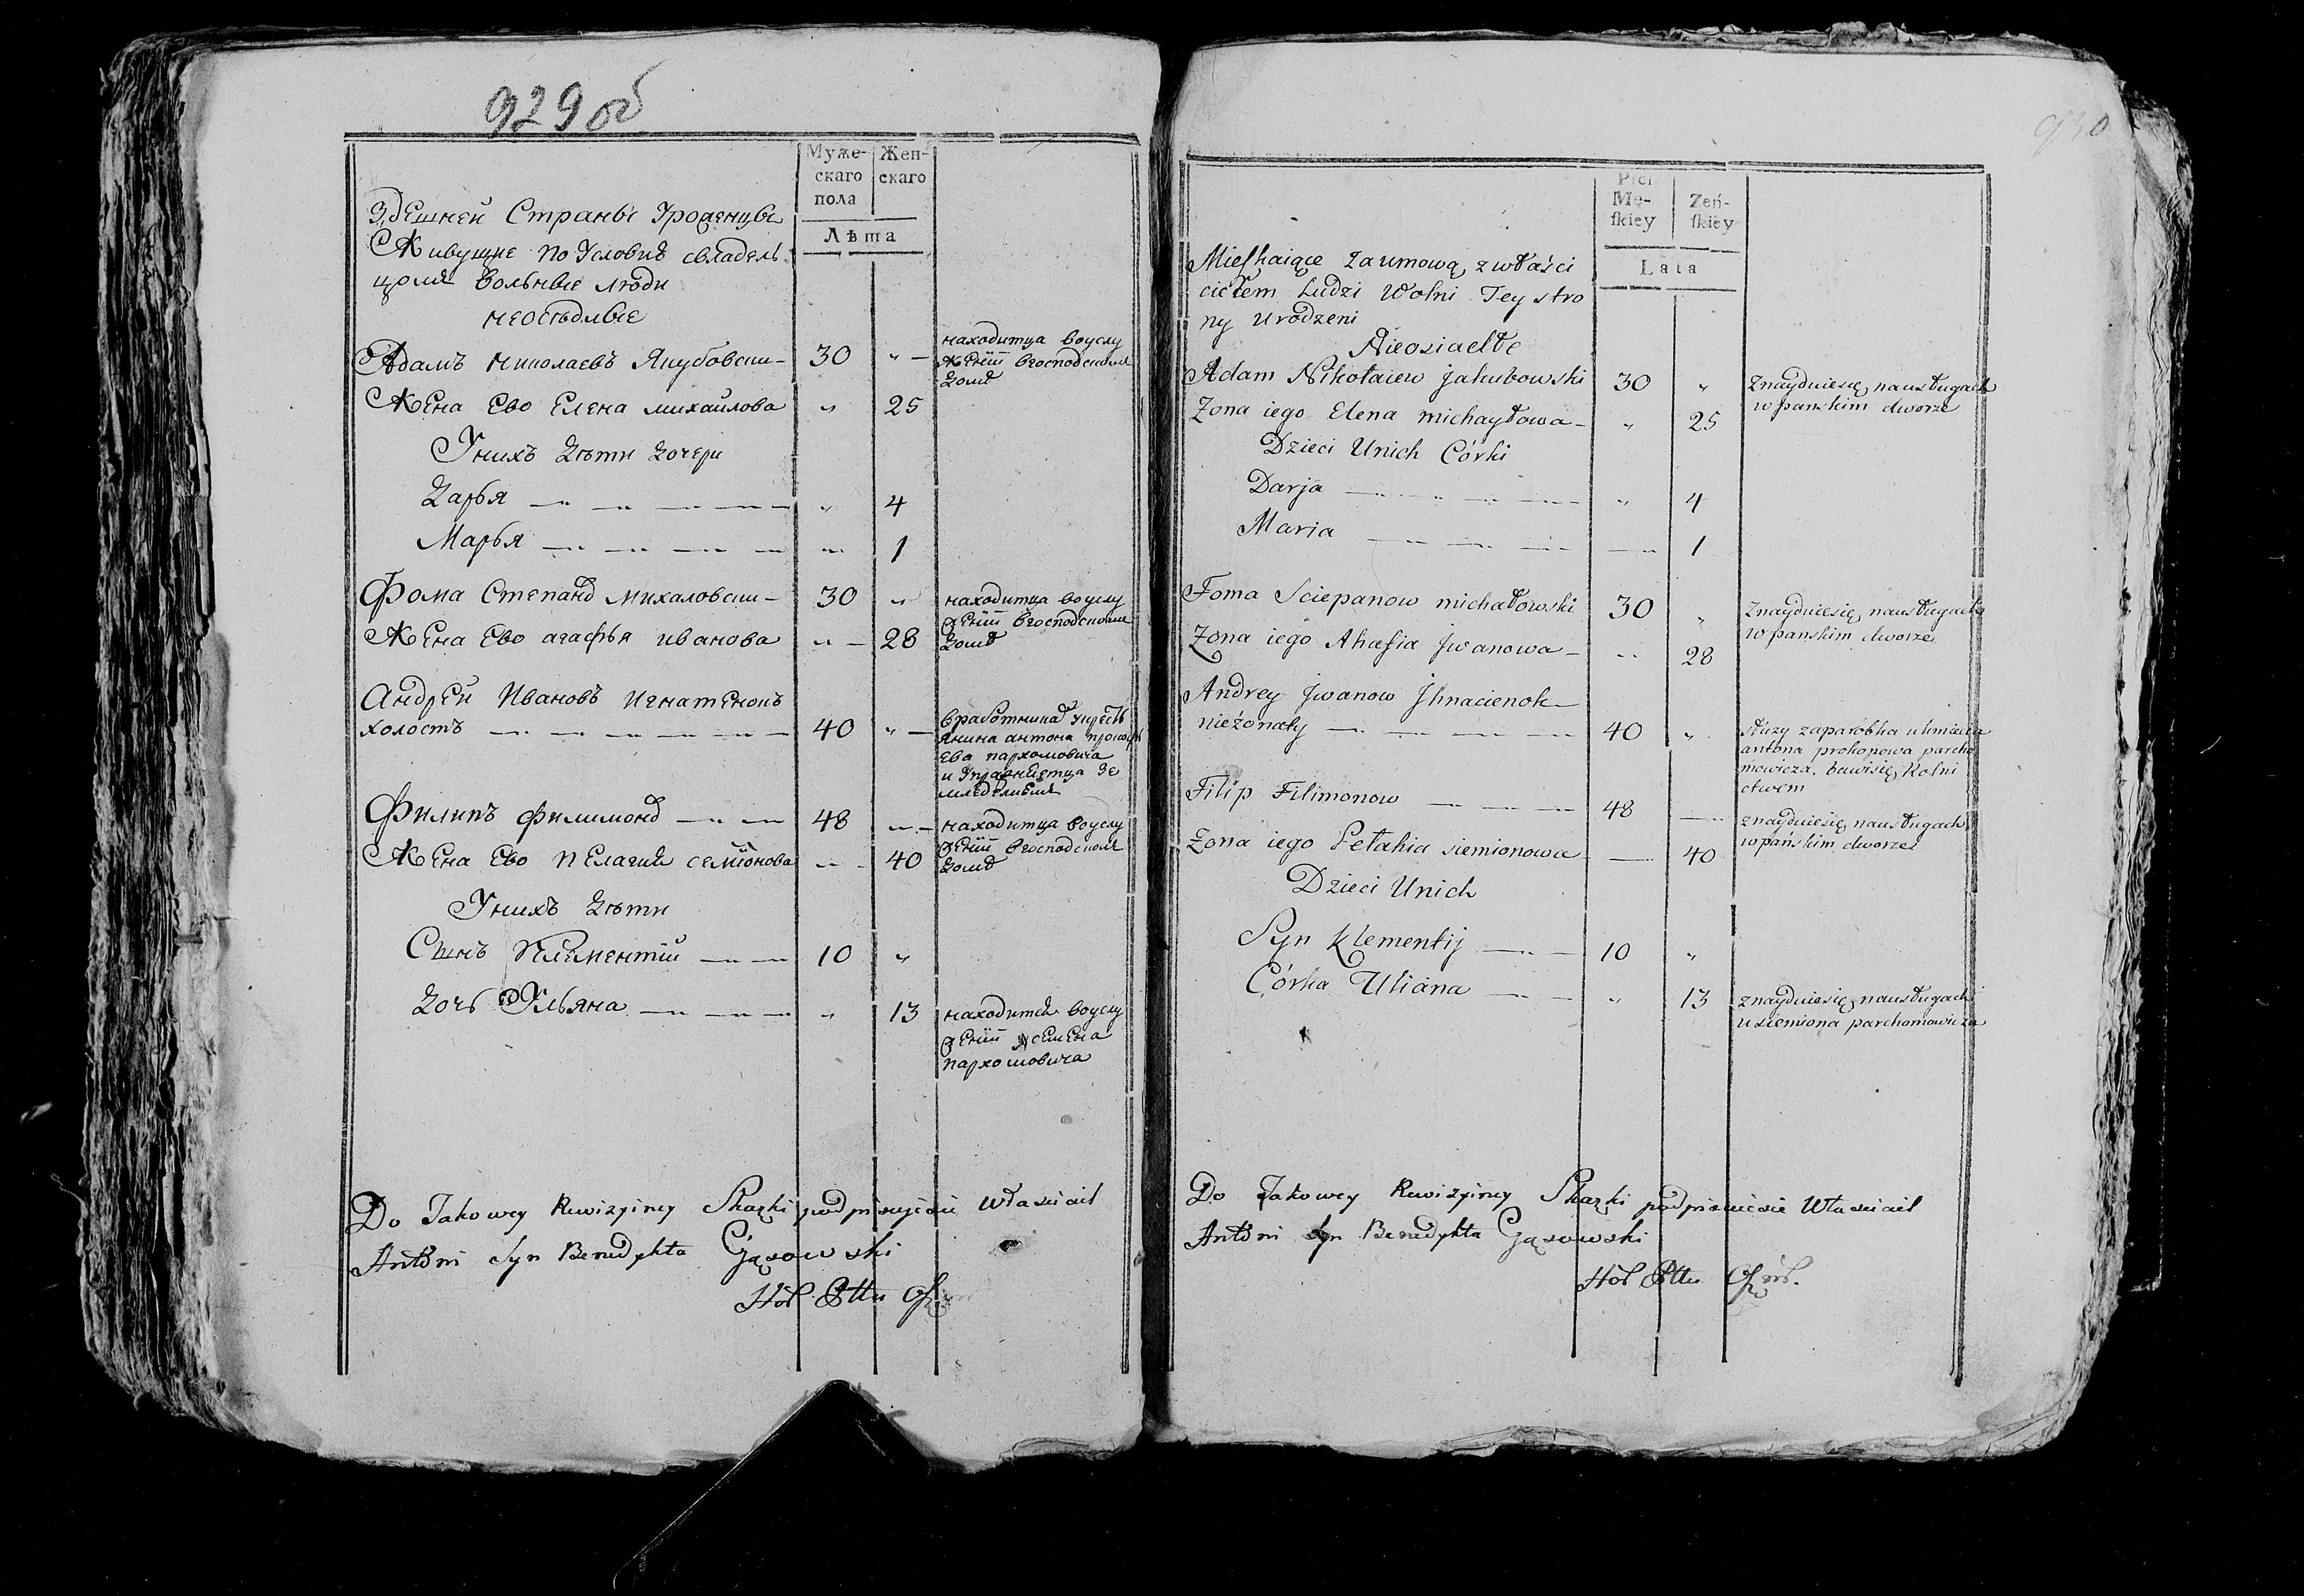 929 об
Муже-
скаго
пола
Жен-
скаго
Лѣта
Здешней Страны Уроженцы
Живущие по Условию свладель
цомъ вольные люди
неоседлые
Адамъ Николаевъ Якубовски- 30 „ –
находитца воуслу
жении вгосподскомъ
доме
Жена Ево Елена михайлова „ 25
Унихъ дѣти дочери
Дарья „ 4
Марья „ 1
Фома Степановъ михаловски- 30 „
находитца воуслу
жении вгосподскомъ
доме
Жена Ево агафья иванова „ – 28
Андрей Ивановъ Игнатенокъ
холостъ 40 „ –
вработникахъ укресть
янина антона прокофь
ева пархомовича
и упражняетца зе
мледелиемъ
Филипъ филимоновъ 48 „ –
находитца воуслу
жении вгосподскомъ
доме
Жена Ево пелагия семионова „ 40
Унихъ дѣти
Сынъ Клементий 10 „
Дочь Ульяна „ 13
находится воуслу
жении усемена
пархомовича
Do Takowey Rewizyiney Skazki podpisuiesie Własciciel
Antoni syn Benedykta Gąsowski
930
Płci
Mę-
ſkiey
Żeń-
ſkiey
Lata
Mieſhaiące za umową z właści
cielem Ludzi Wolni Tey stro
ny urodzeni
Nieosiadłe
Adam Nikołaiew Jakubowski 30 „
Znayduiesię nausługach
wpanskim dworze
Zona iego Elena michayłowa – „ 25
Dzieci Unich Córki
Darja „ 4
Maria 1
Foma Sciepanow michałowski 30 „
Znayduiesię nausługach
wpanskim dworze
Zona iego Ahafia Jwanowa – „ 28
Andrey Jwanow Jhnacienok
nieżonaty 40 „
słuzy zaparobka ukmiecia
antona prokopowa parcho
mowicza, bawisię Rolni
ctwem
Filip Filimonow 48
znayduiesię nausługach
wpańskim dworze
żona iego Pełahia siemionowa 40
Dzieci Unich
Syn Klementij 10 „
Córka Uliana „ 13
znayduiesię nausługach
usiemiona parchomowicza
Do Takowey Rewizyiney Skazki podpisuiesie Własciciel
Antoni syn Benedykta Gąsowski